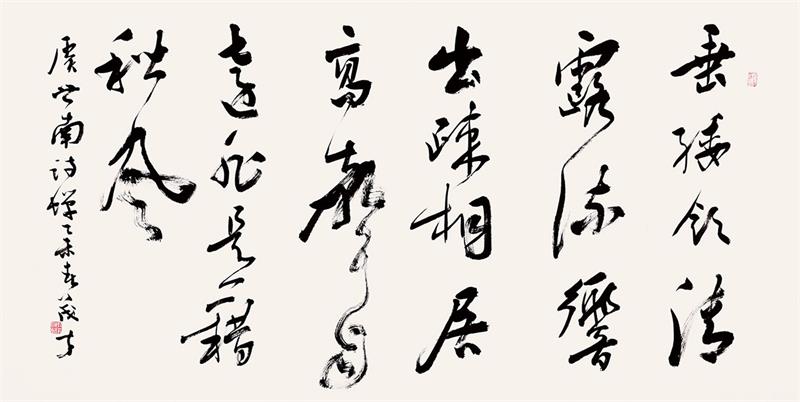 垂緌飲清
露流響
出疎桐居
高聲自
遠非是藉
秋風
虞世南詩蟬乙未春